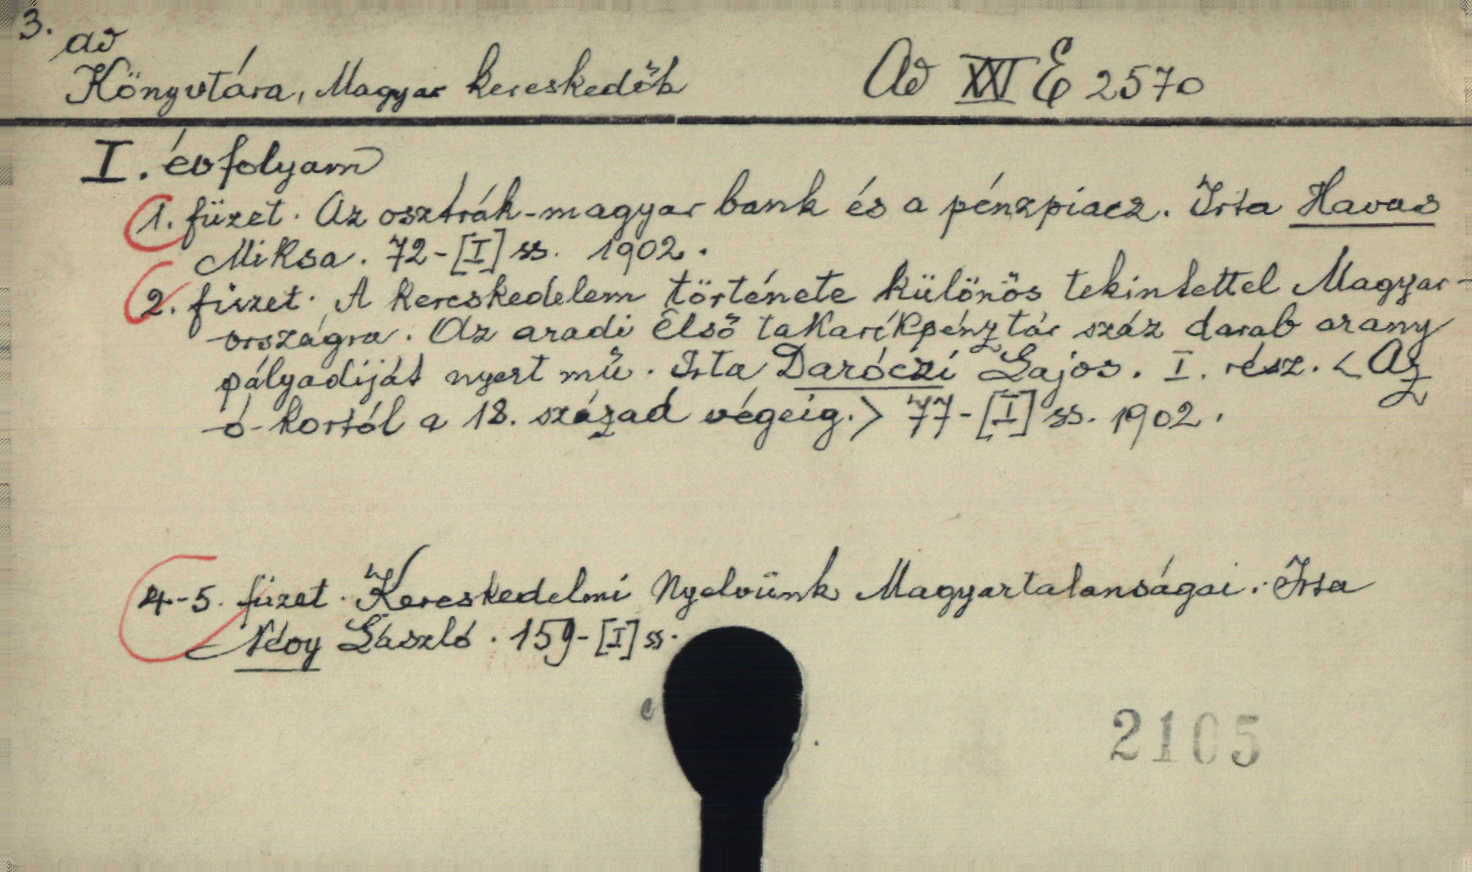 3.
ad
Könyvtára, Magyar kereskedők
Ad XXI E 2570
I. évfolyam
1. füzet. Az osztrák-magyar bank és a pénzpiacz. Irta Havas
Miksa. 72-[I] ss. 1902.
2. füzet. A kereskedelem története különös tekintettel Magyar-
országra. Az aradi Első takarékpénztár száz darab arany
pályadíját nyert mű. Irta Daróczi Lajos. I. rész. <Az
ó-kortól a 18. század végeig.> 77-[I] ss. 1902.
4-5. füzet. Kereskedelmi Nyelvünk Magyartalanságai. Irta
Névy László. 159-[I] ss.
2105